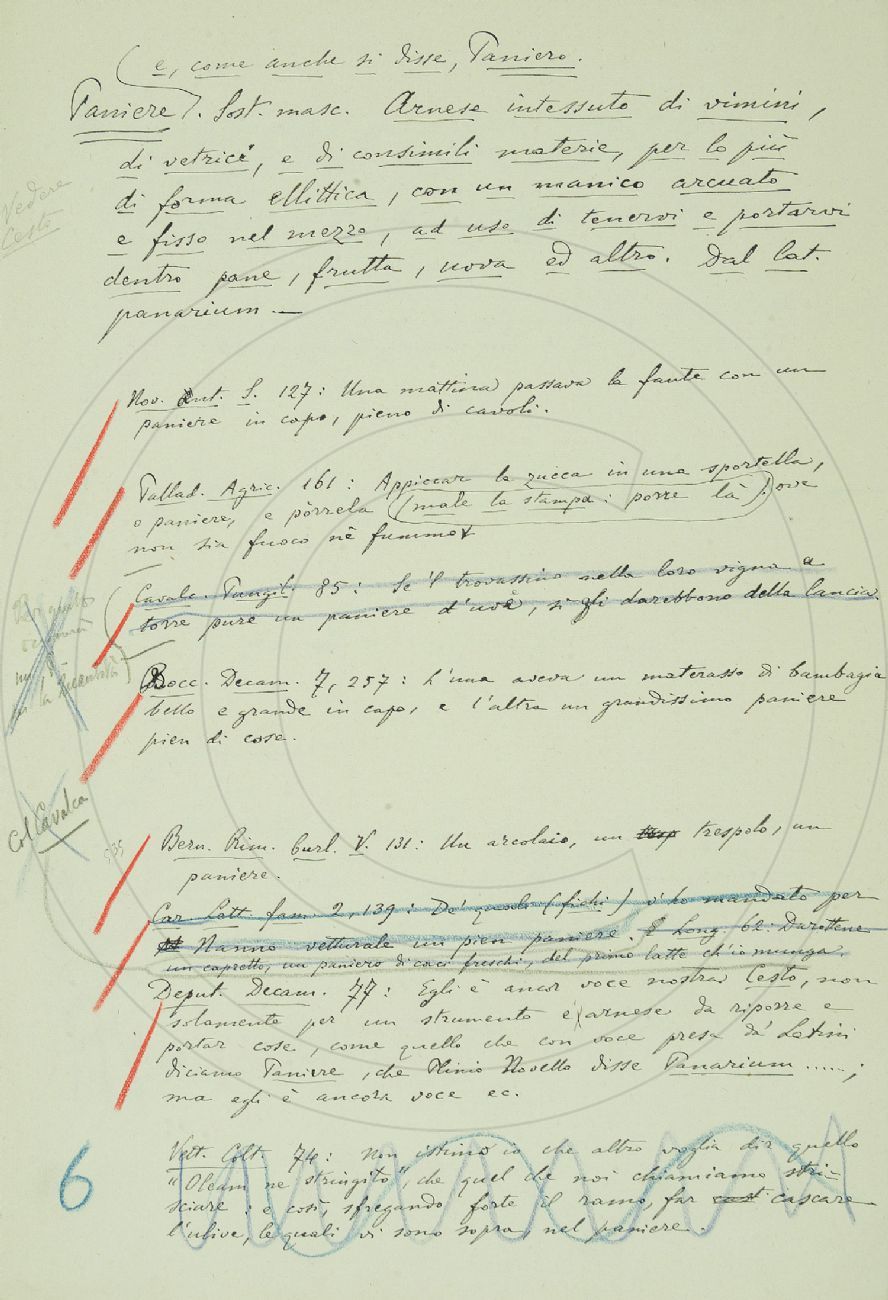 e, come anche si disse, Paniero.
Paniere. Sost. masc. Arnese intessuto di vimini,
di vetrice, e di consimili materie, per lo più
di forma ellittica, con un manico arcuato
e fisso nel mezzo, ad uso di tenervi e portarvi
dentro pane, frutta, uova ed altro. Dal lat.
panarium.—
Vedere
Cesto
Nov. Ant. S. 127: Una mattina passava la fante con un
paniere in capo, pieno di cavoli.
Pallad. Agric. 161: Appiccar la zucca in una sportella,
o paniere, e pórrela (male la stampa: porre là) ove
non sia fuoco nè fummo
Cavalc. Pungil. 85: Se 'l trovassino nella loro vigna a
torre pure un paniere d'uve, si gli darebbono della lancia.
Per questo
Bocc. Decam. 7, 257: L'una aveva un materasso di bambagia
bello e grande in capo, e l'altra un grandissimo paniere
pien di cose.
Col Cavalca
Bern. Rim. burl. V. 131: Un arcolaio, un trespolo, un
paniere.
Car. Lett. fam. 2, 139: De' quali (fichi) v'ho mandato per
Nanno vetturale un pien paniere. E Long. 62: Darottene
un capretto, un paniero di caci freschi, del primo latte ch'io munga.
Deput. Decam. 77: Egli è ancor voce nostra Cesto, non
solamente per un strumento e arnese da riporre e
portar cose, come quello che con voce presa da' Latini
diciamo Paniere, che Plinio Novello disse Panarium .....;
ma egli è ancora voce ec.
6
Vett. Colt. 74: Non istimo io che altro voglia dir quello
"Oleam ne stringito", che quel che noi chiamiamo stri-
sciare: e così, sfregando forte il ramo, far cascare
l'ulive, le quali vi sono sopra, nel paniere.